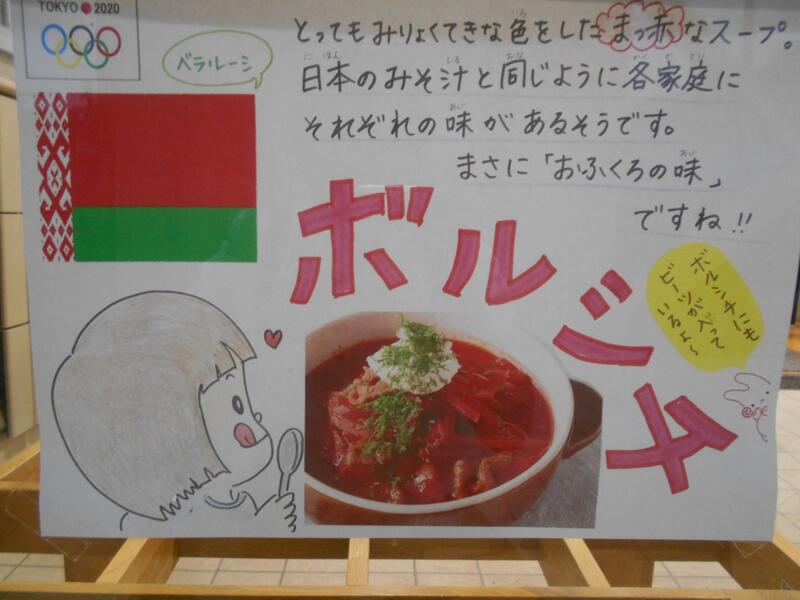 TOKYO 2020
ベラルーシ
とってもみりょくてきな色をしたまっ赤なスープ。
日本のみそ汁と同じように各家庭に
それぞれの味があるそうです。
まさに「おふくろの味」
ですね!!
ボルシチ
ボルシチにも
ビーツが入って
いるよ〜